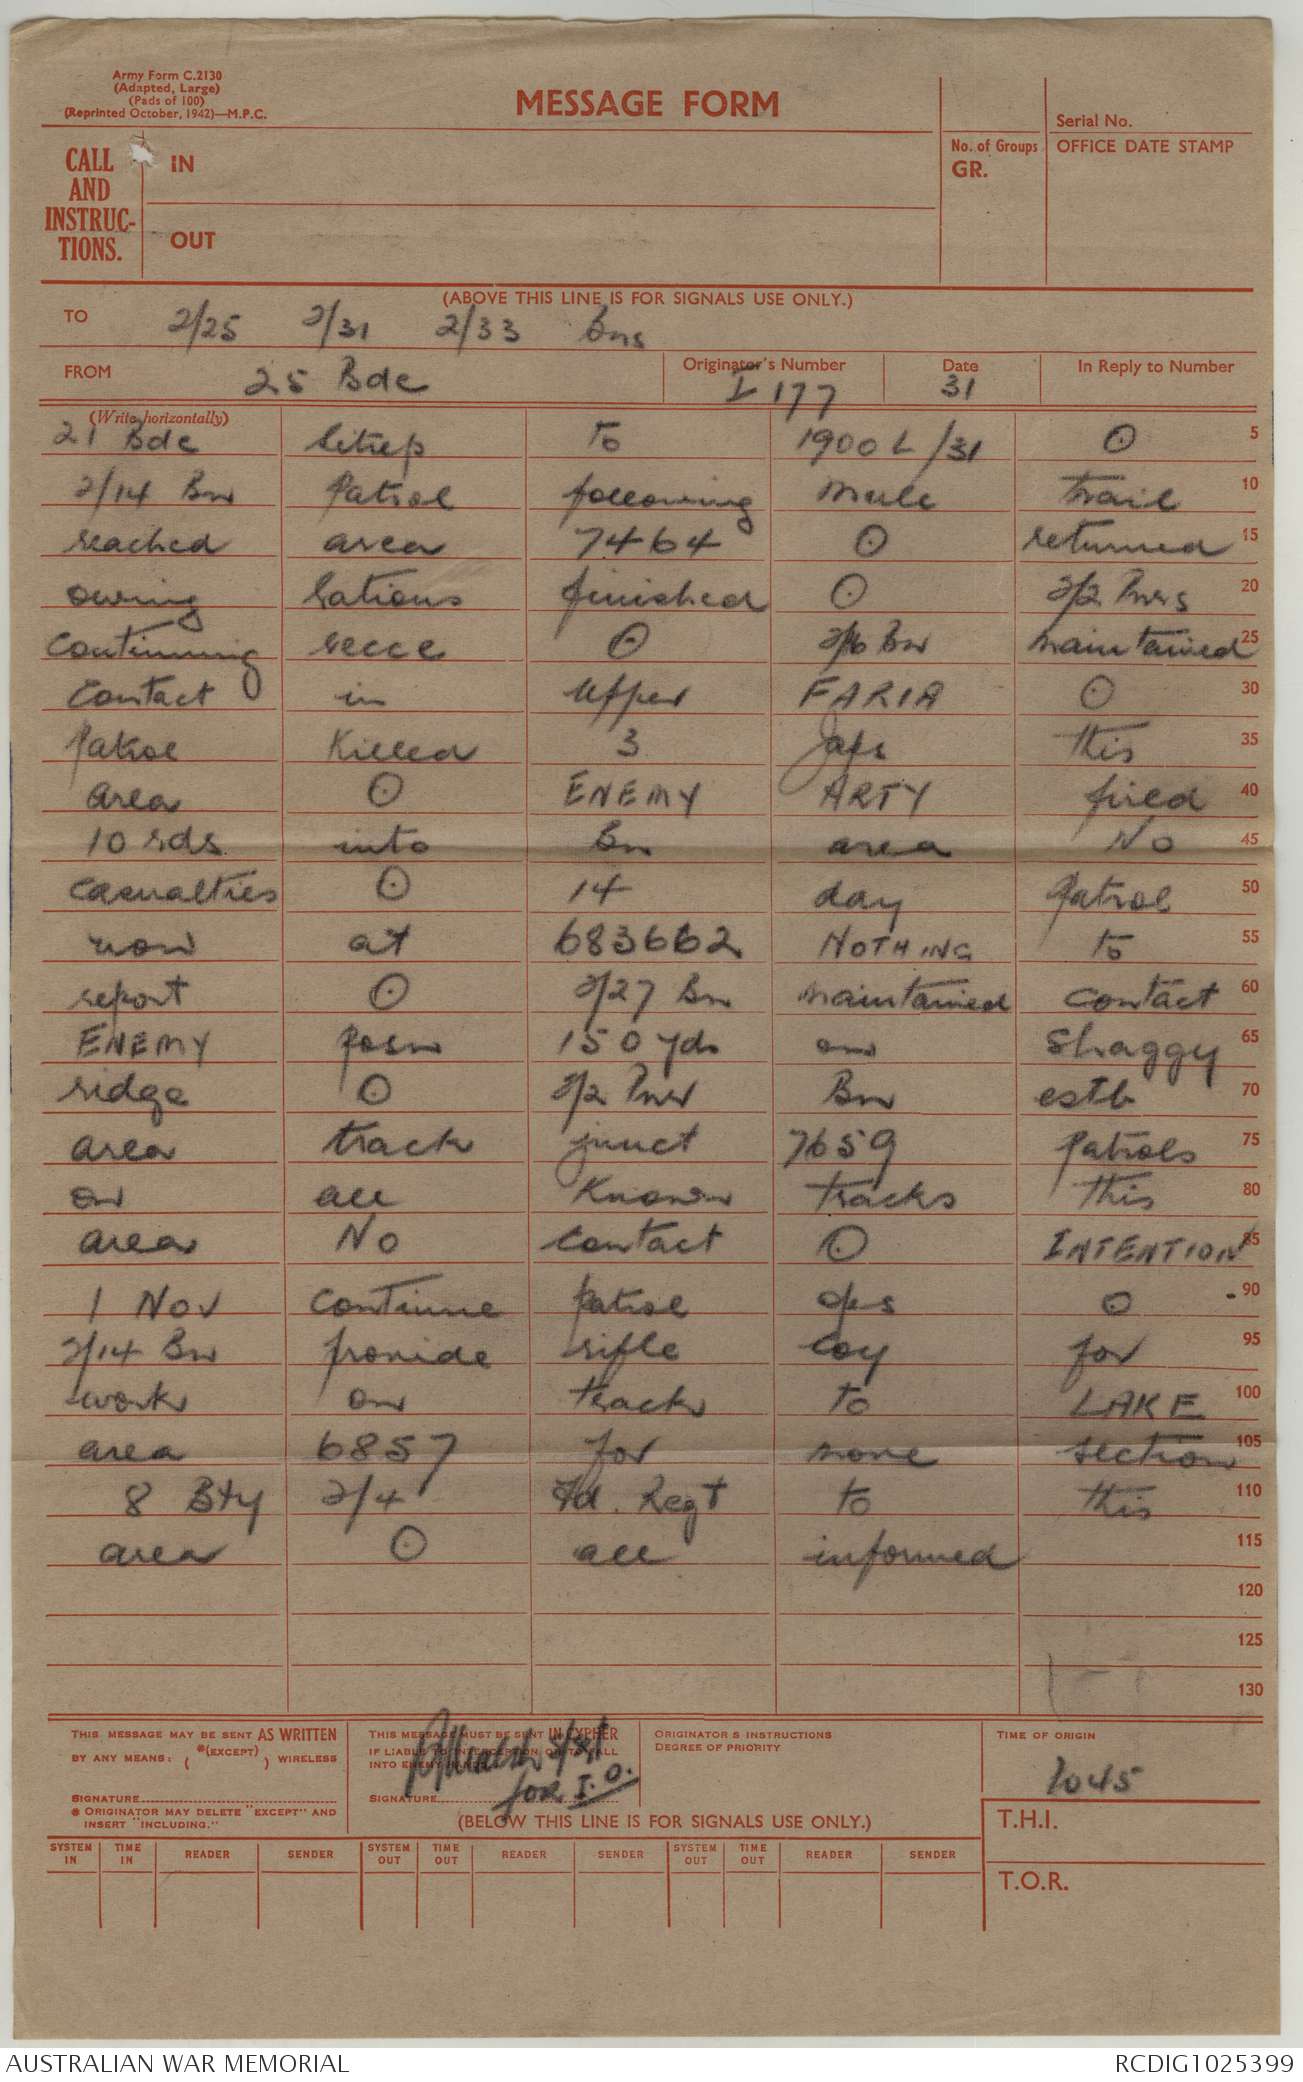 Army Form C.2130
(Adapted, Large)
(Pads of 100)
(Reprinted October, 1942)—M.P.C.
MESSAGE FORM
Serial No.
CALL AND INSTRUC-TIONS.
IN
No. of Groups
GR.
OFFICE DATE STAMP
OUT
(ABOVE THIS LINE IS FOR SIGNALS USE ONLY.)
TO 2/25 2/31 2/33 Bns
FROM 25 Bde Originator's Number I 177 Date 31 In Reply to Number
(Write horizontally)
21 Bde Sitrep to 1900 L/31 ⊙ 5
2/14 Bn Patrol following Mule trail 10
reached area 7464 ⊙ returned 15
owing rations finished ⊙ 2/2 Pnrs 20
continuing recce ⊙ 2/16 Bn maintained 25
contact in upper FARIA ⊙ 30
Patrol killed 3 Japs this 35
area ⊙ ENEMY ARTY fired 40
10 rds into Bn area No 45
casualties ⊙ 14 day Patrol 50
now at 683662 NOTHING to 55
report ⊙ 2/27 Bn maintained contact 60
ENEMY posn 150 yds on Shaggy 65
ridge ⊙ 2/2 Pnr Bn estb 70
area track junct 7659 Patrols 75
on all known tracks this 80
area No contact ⊙ INTENTION 85
1 Nov continue patrol ops ⊙ 90
2/14 Bn provide rifle coy for 95
work on track to LAKE 100
area 6857 for move section 105
8 Bty 2/4 Fd. Regt to this 110
area ⊙ all informed 115
120
125
130
THIS MESSAGE MAY BE SENT AS WRITTEN
BY ANY MEANS: ( *(EXCEPT) ) WIRELESS
SIGNATURE
* ORIGINATOR MAY DELETE "EXCEPT" AND
INSERT "INCLUDING."
THIS MESSAGE MUST BE SENT IN CYPHER
IF LIABLE TO INTERCEPTION OR TO FALL
INTO ENEMY HANDS.
SIGNATURE for I.O.
ORIGINATOR'S INSTRUCTIONS
DEGREE OF PRIORITY
TIME OF ORIGIN
1045
(BELOW THIS LINE IS FOR SIGNALS USE ONLY.)
T.H.I.
SYSTEM IN TIME IN READER SENDER SYSTEM OUT TIME OUT READER SENDER SYSTEM OUT TIME OUT READER SENDER
T.O.R.
AUSTRALIAN WAR MEMORIAL RCDIG1025399